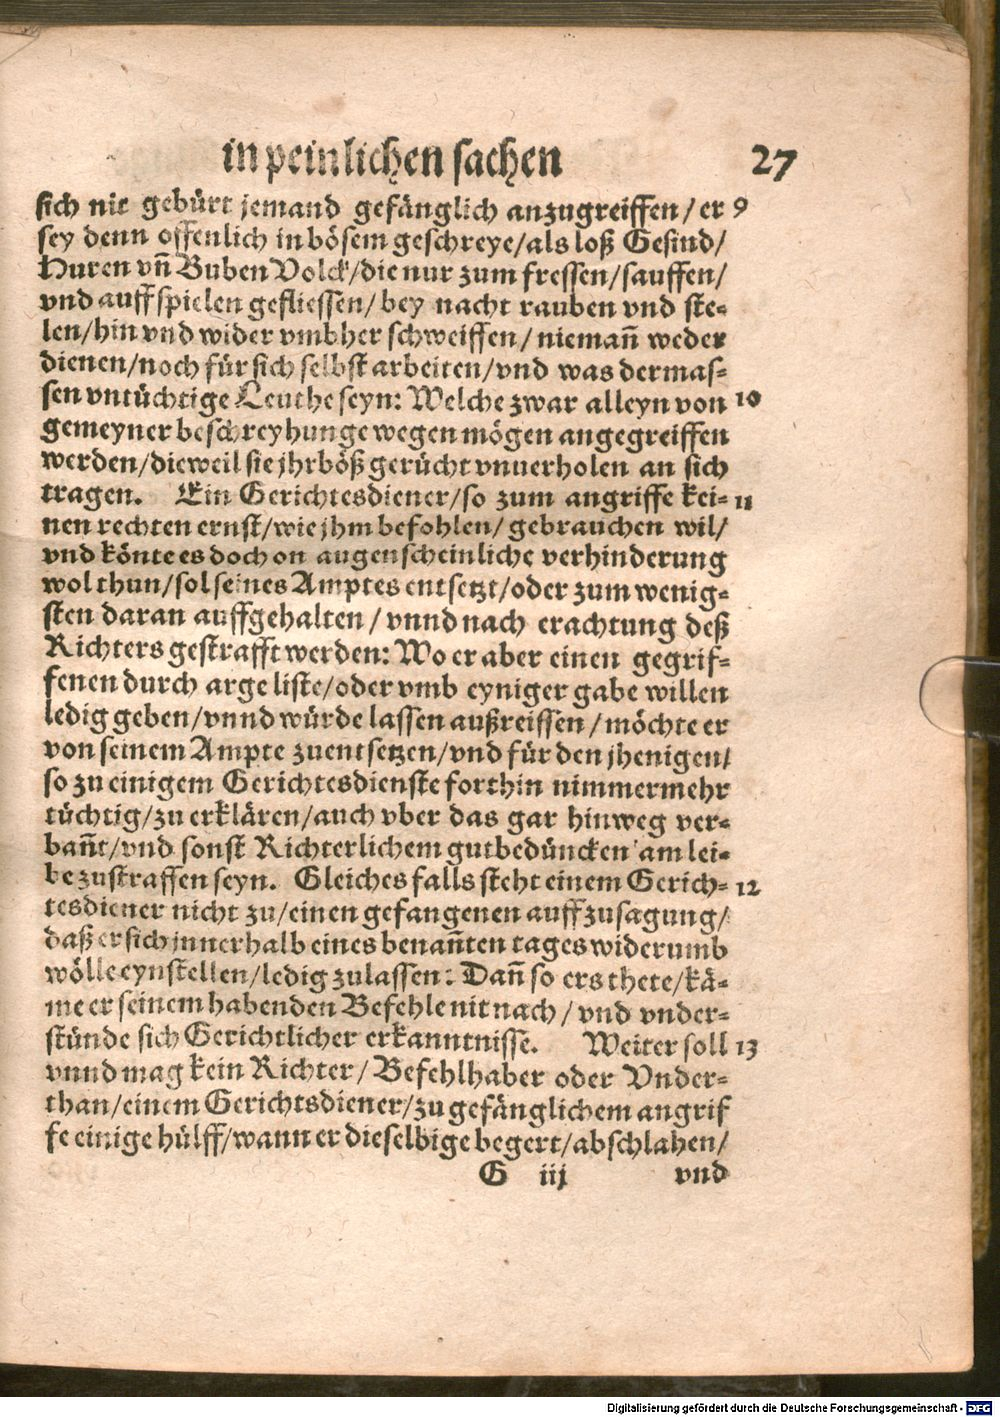 in peinlichen sachen 27
sich nit gebürt jemand gefänglich anzugreiffen / er 9
sey denn offenlich in bösem geschreye / als loß Gesind /
Huren vñ Buben Volck / die nur zum fressen / sauffen /
vnd auff spielen gefliessen / bey nacht rauben vnd ste=
len / hin vnd wider vmbher schweiffen / niemañ weder
dienen / noch für sich selbst arbeiten / vnd was dermas=
sen vntüchtige Leuthe seyn: Welche zwar alleyn von 10
gemeyner beschreyhunge wegen mögen angegreiffen
werden / dieweil sie jhr böß gerücht vnuerholen an sich
tragen. Ein Gerichtesdiener / so zum angriffe kei= 11
nen rechten ernst / wie jhm befohlen / gebrauchen wil /
vnd könte es doch on augenscheinliche verhinderung
wol thun / sol seines Amptes entsetzt / oder zum wenig=
sten daran auffgehalten / vnnd nach erachtung deß
Richters gestrafft werden: Wo er aber einen gegrif=
fenen durch arge liste / oder vmb eyniger gabe willen
ledig geben / vnnd würde lassen außreissen / möchte er
von seinem Ampte zuentsetzen / vnd für den jhenigen /
so zu einigem Gerichtesdienste forthin nimmermehr
tüchtig / zu erklären / auch vber das gar hinweg ver=
bañt / vnd sonst Richterlichem gutbedüncken am lei=
be zustraffen seyn. Gleiches falls steht einem Gerich= 12
tesdiener nicht zu / einen gefangenen auff zusagung /
daß er sich jnnerhalb eines benañten tages widerumb
wölle eynstellen / ledig zulassen: Dañ so ers thete / kä=
me er seinem habenden Befehle nit nach / vnd vnder=
stünde sich Gerichtlicher erkanntnisse. Weiter soll 13
vnnd mag kein Richter / Befehlhaber oder Vnder=
than / einem Gerichtsdiener / zu gefänglichem angrif
fe einige hülff / wann er dieselbige begert / abschlahen /
G iij vnd
Digitalisierung gefördert durch die Deutsche Forschungsgemeinschaft - DFG